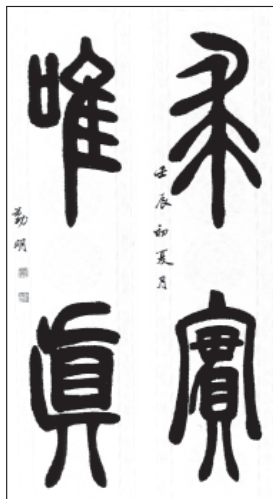 求實
壬辰初夏月
唯眞
勤明